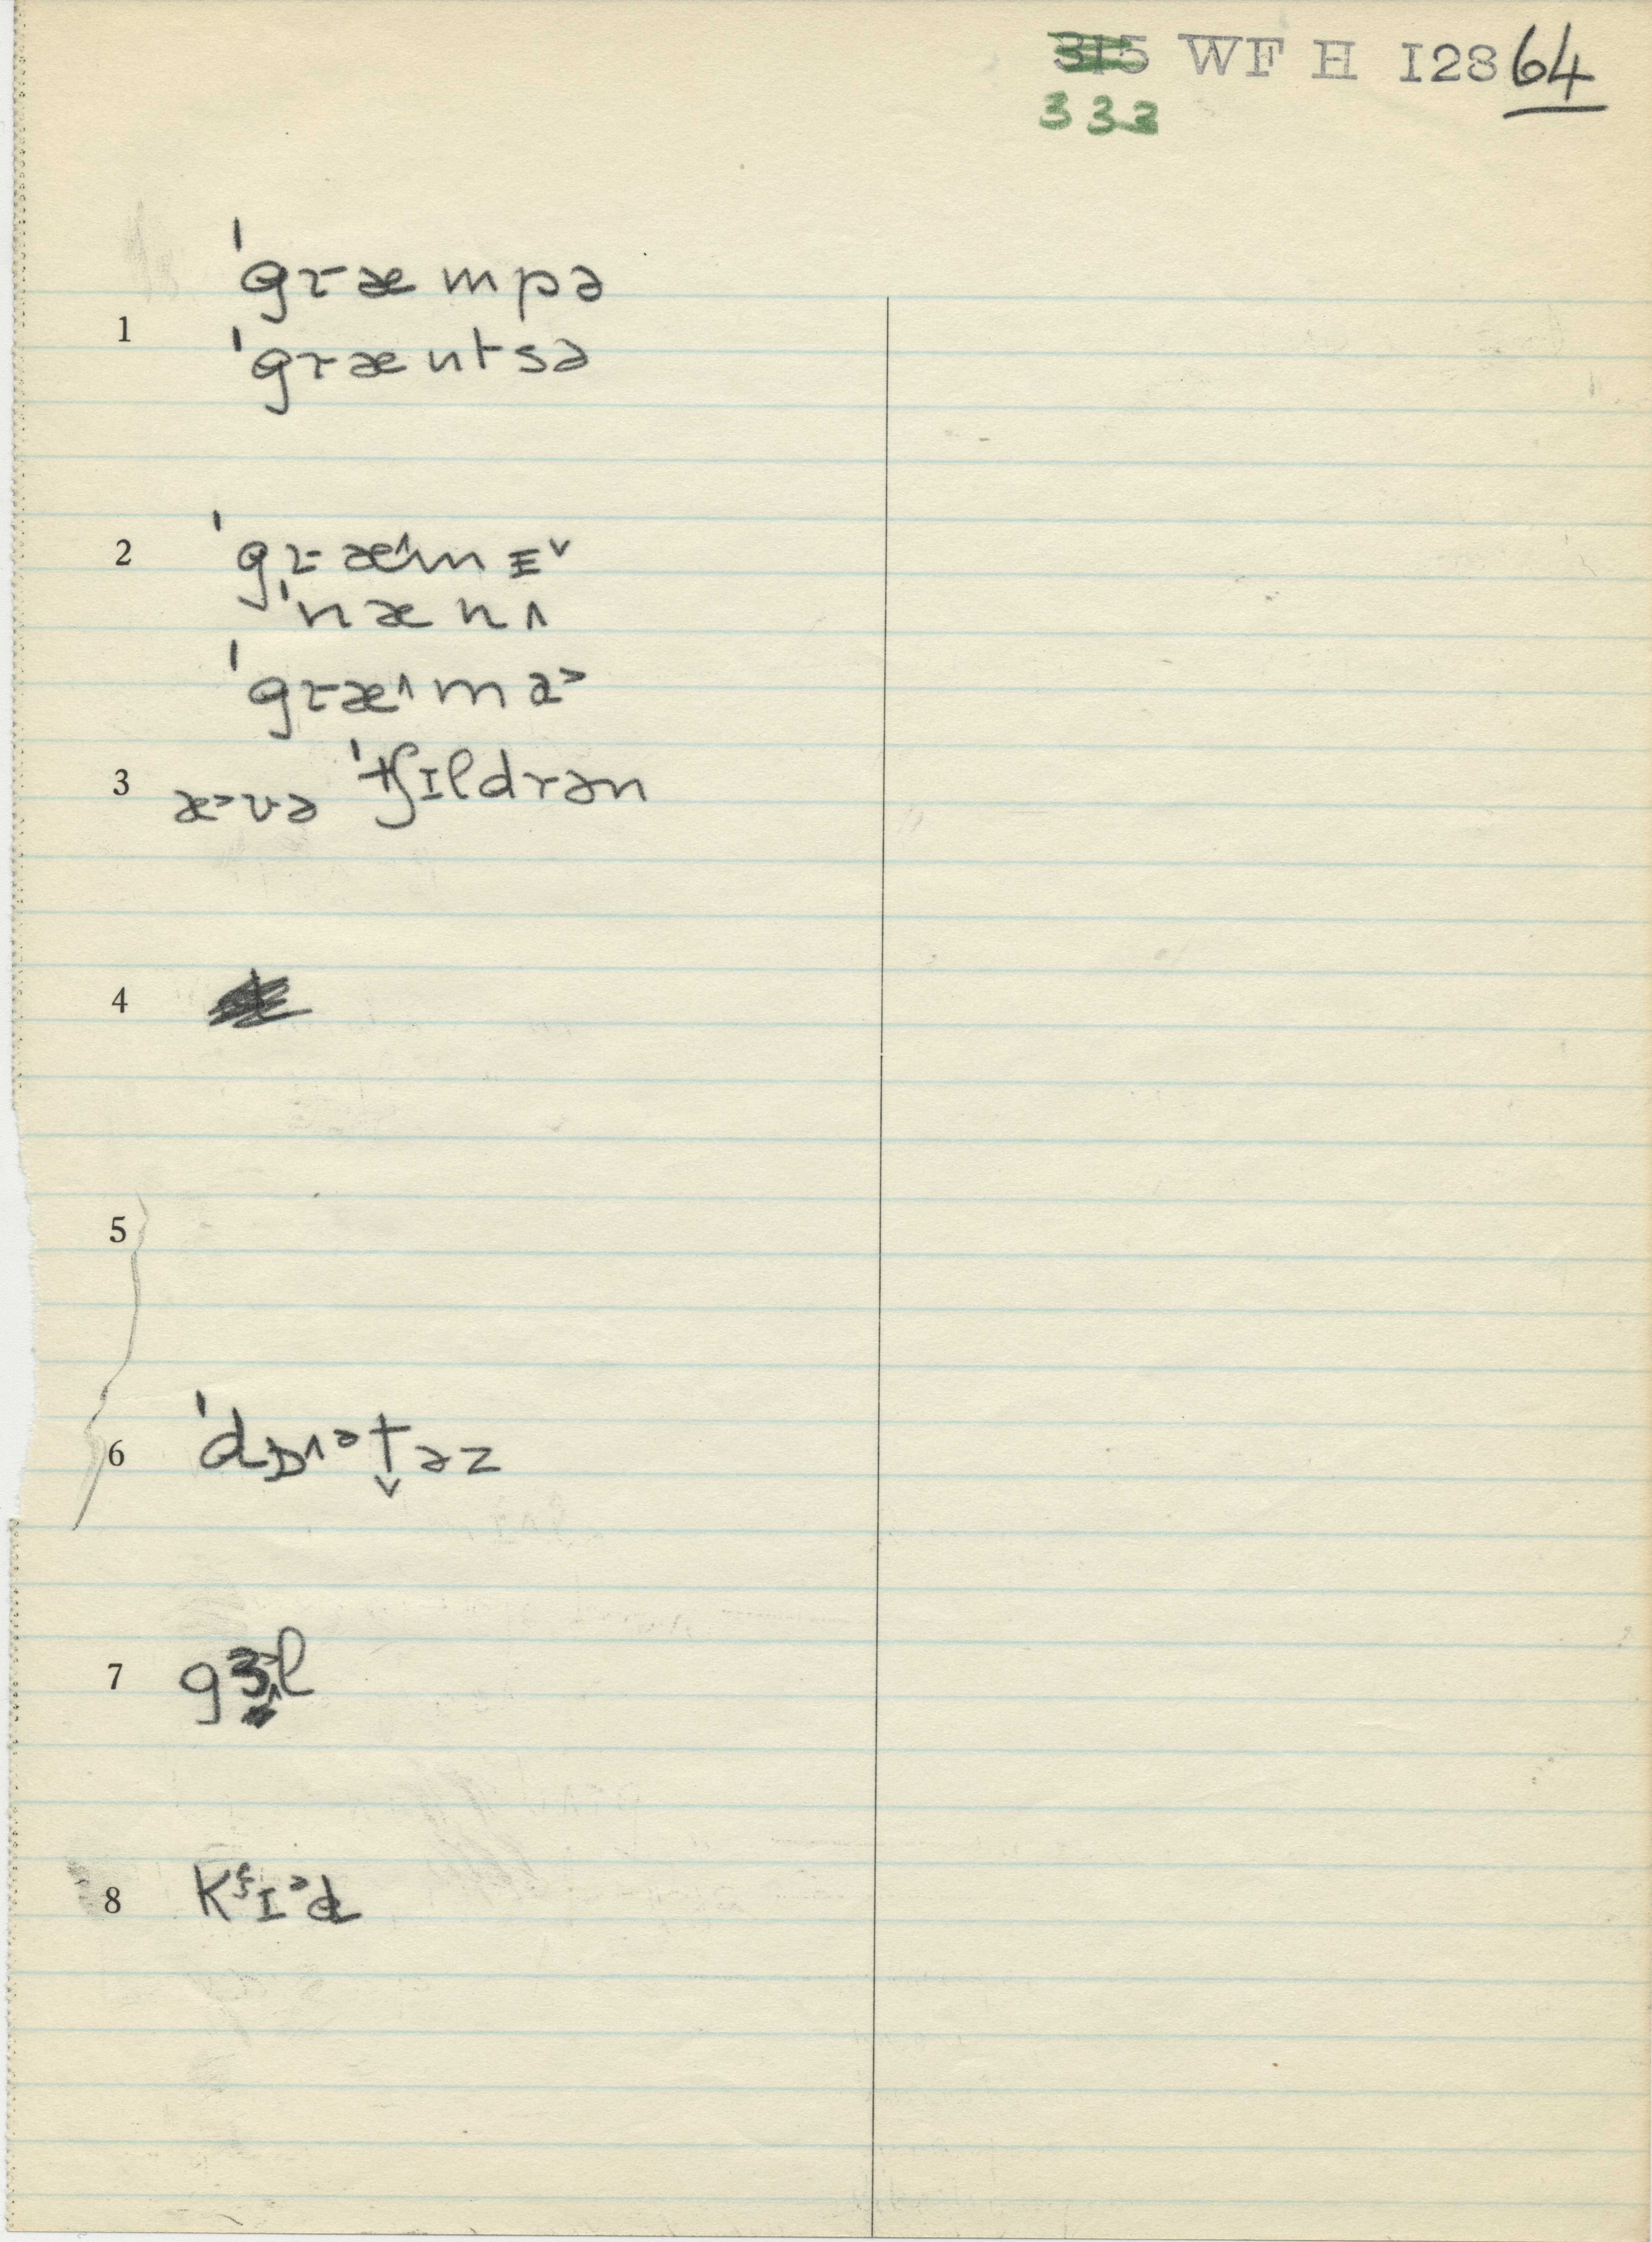 315 WF H I28 64
332
ˈgræmpə
1
ˈgræntsə
2 ˈgræ^mɪ˅
ˈnænʌ
ˈgræ^mə˃
3 æ˃və ˈtʃɪldrən
4
5
6 ˈdɒ^ᵊt̬əz
7 gɜl
8 kʰɪᵊd